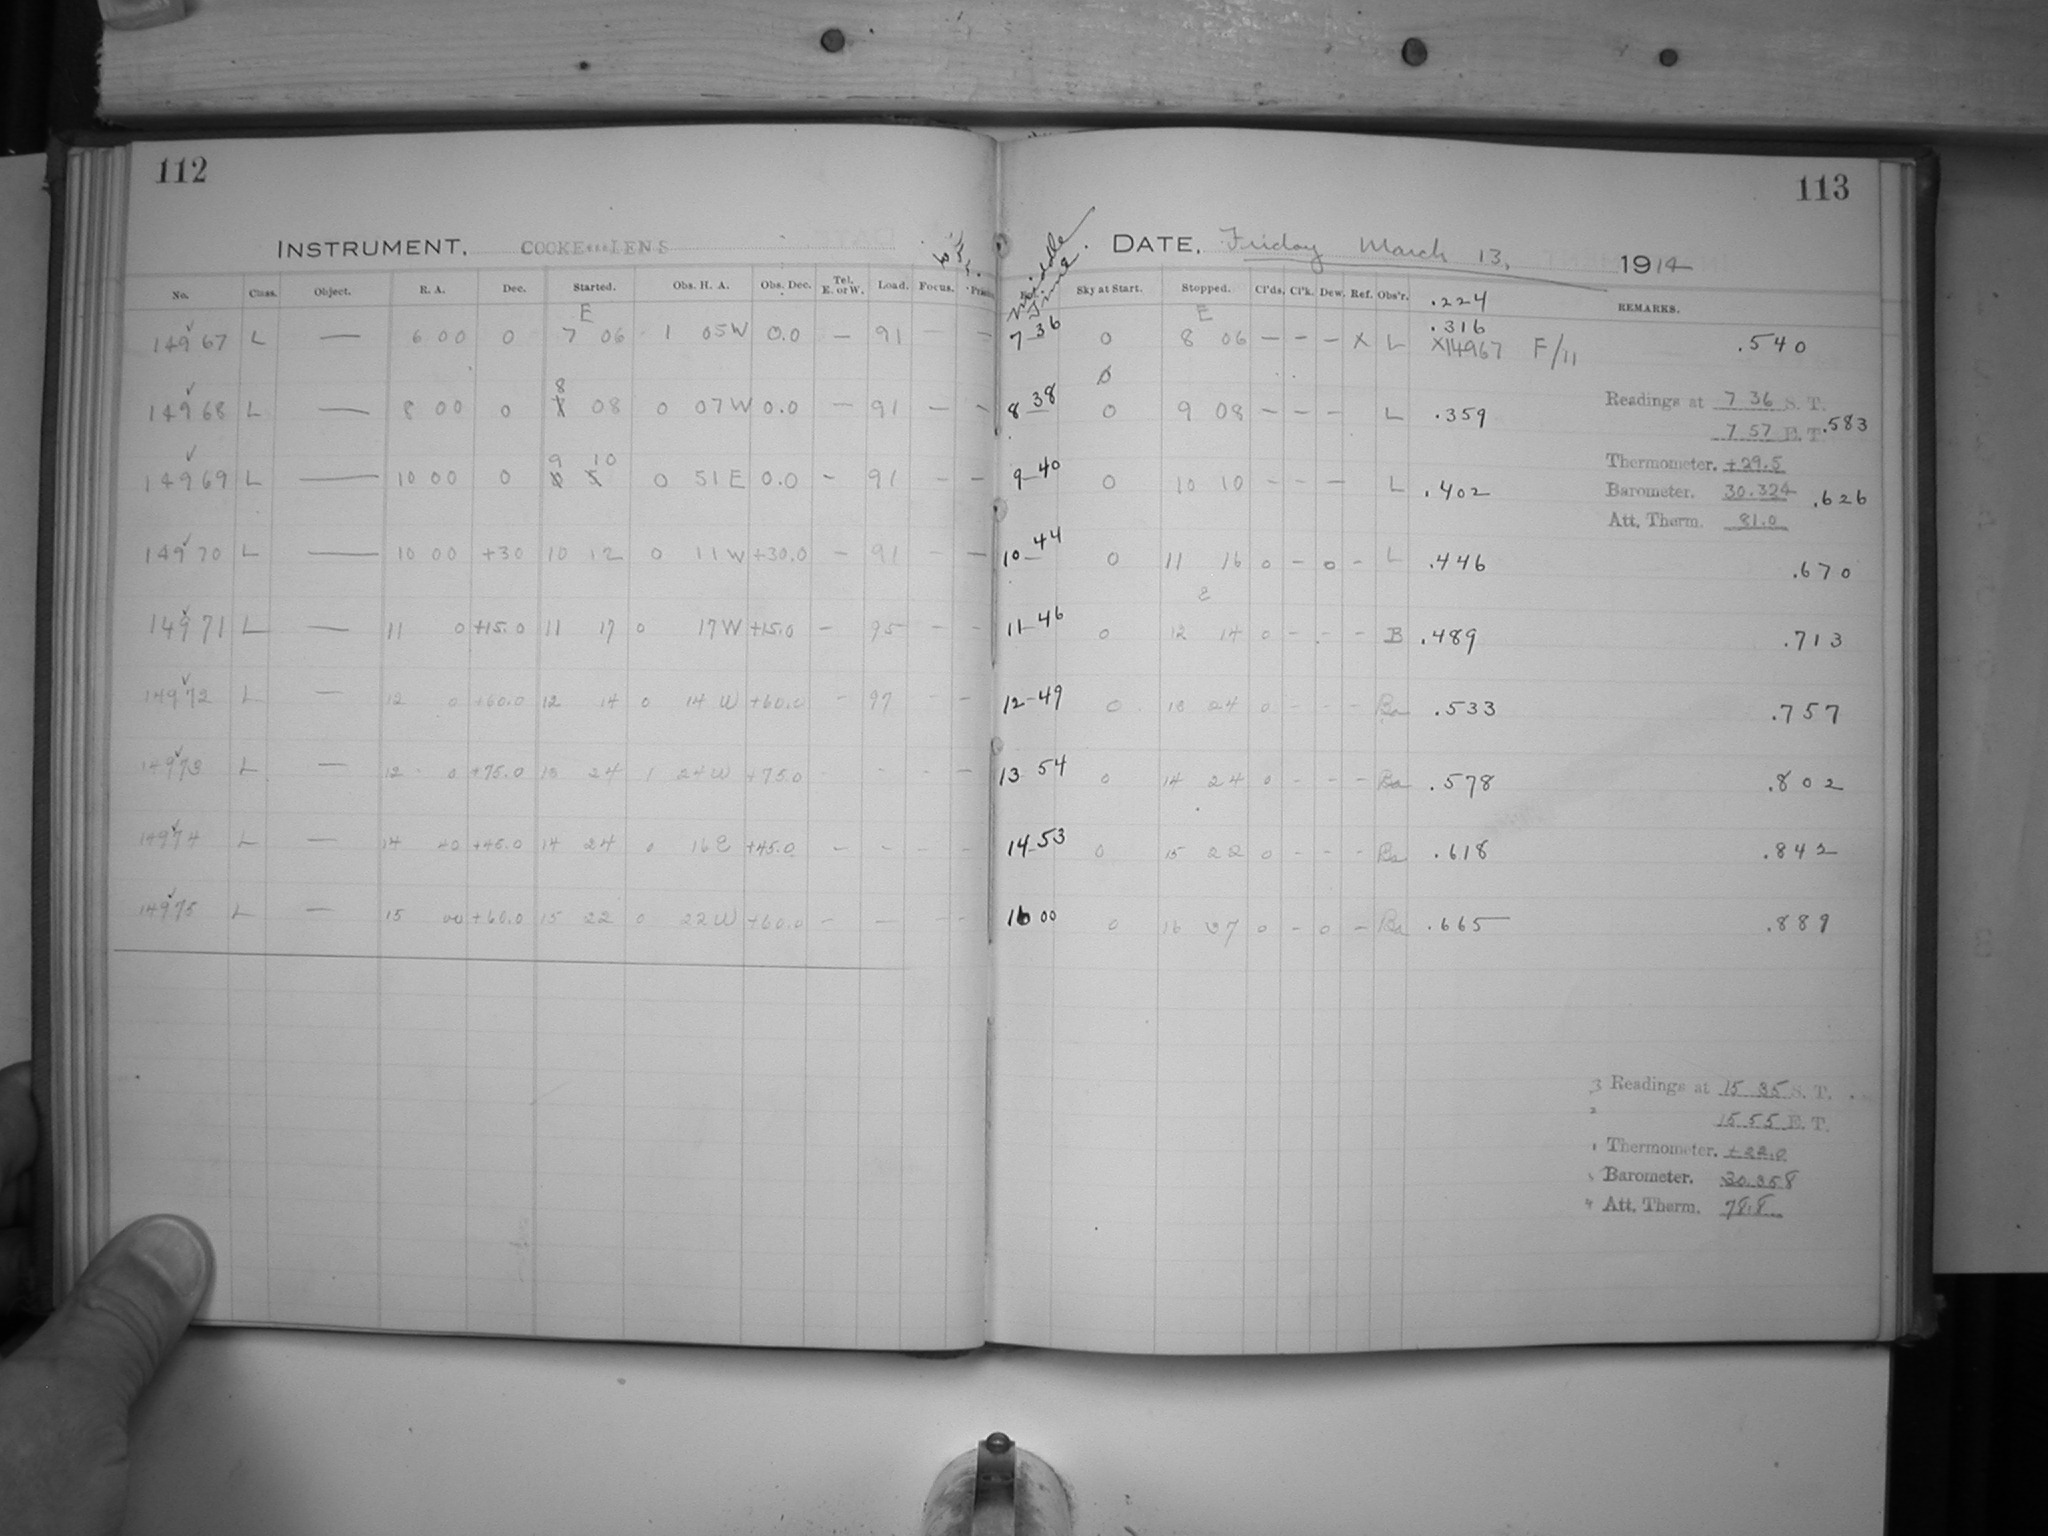 112
INSTRUMENT. COOKE LENS
No. Class. Object. R. A. Dec. Started. Obs. H. A. Obs. Dec. Tel. E. or W. Load. Focus.
E
14967 L — 6 00 0 7 06 1 05W 0.0 — 91 — —
14968 L — 8 00 0 8 08 0 07W 0.0 — 91 — —
14969 L — 10 00 0 9 10 0 51E 0.0 - 91 — —
14970 L — 10 00 +30 10 12 0 11W +30.0 - 91 - —
14971 L — 11 0 +15.0 11 17 0 17W +15.0 - 95 - -
14972 L — 12 0 +60.0 12 14 0 14W +60.0 - 97 - -
14973 L — 12 0 +75.0 13 24 1 24W +75.0 - - - —
14974 L — 14 40 +45.0 14 24 0 16E +45.0 - - - -
14975 L — 15 00 +60.0 15 22 0 22W +60.0 - — - -
113
DATE. Friday March 13, 1914
Middle Time. Sky at Start. Stopped. Cl'ds. Cl'k. Dew. Ref. Obs'r. REMARKS.
.224
E .316
7-36 0 8 06 — — — X L X14967 F/11 .540
0
8 38 0 9 08 — — — L .359 .583
9-40 0 10 10 - - — L .402 .626
10-44 0 11 16 0 - 0 - L .446 .670
11-46 0 12 14 0 - - - B .489 .713
12-49 0 13 24 0 - - - Ba .533 .757
13 54 0 14 24 0 - - - Ba .578 .802
14-53 0 15 22 0 - - - Ba .618 .842
16 00 0 16 37 0 - 0 - Ba .665 .889
Readings at 7 36 S. T.
7 57 E. T.
Thermometer. +29.5
Barometer. 30.324
Att. Therm. 81.0
3 Readings at 15 35 S. T.
2 15 55 E. T.
1 Thermometer. +22.0
5 Barometer. 30.358
4 Att. Therm. 78.8